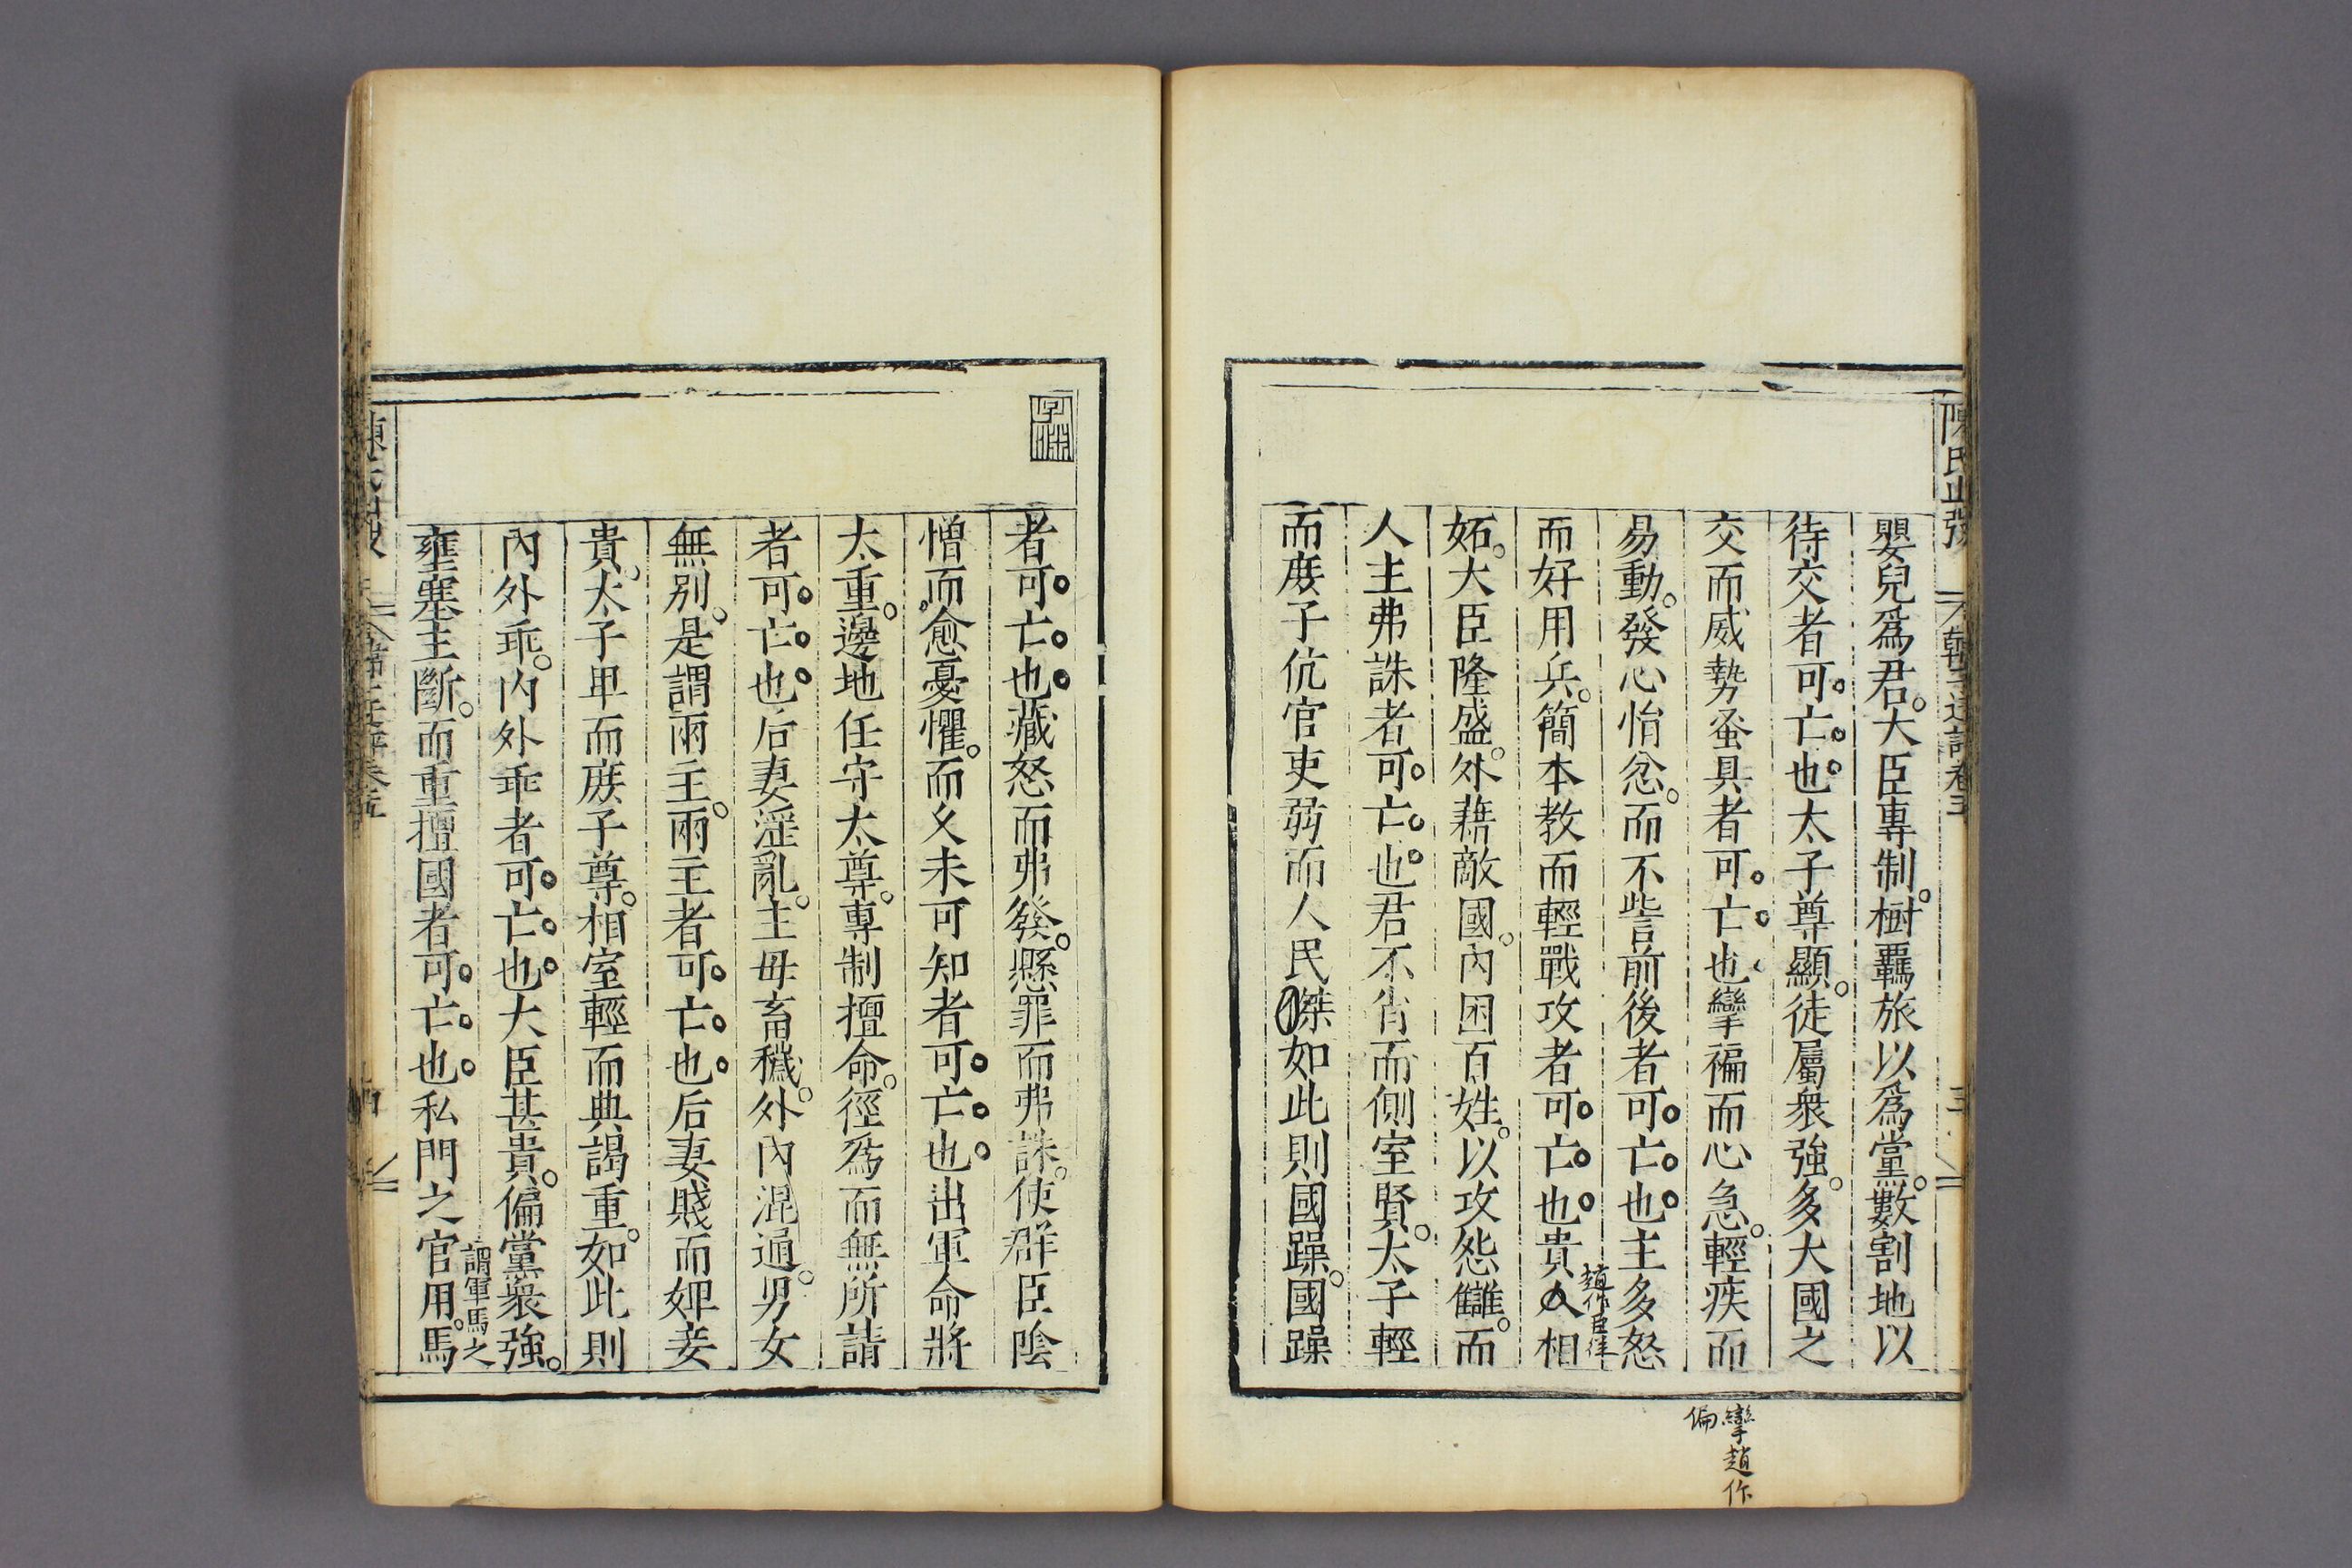 嬰兒爲君大臣專制樹羈旅以爲黨數割地以
待交者可亡也太子尊顯徒屬衆強多大國之
交而威勢蚤具者可亡也攣褊而心急輕疾而
易動發心悁忿而不訾前後者可亡也主多怒
而好用兵簡本教而輕戰攻者可亡也貴人相
趙作臣
妬大臣隆盛外藉敵國內困百姓以攻怨讎而
人主弗誅者可亡也君不肖而側室賢太子輕
而庻子伉官吏弱而人民傑如此則國躁國躁
攣趙作
偏
者可亡也藏怒而弗發懸罪而弗誅使群臣陰
憎而愈憂懼而久未可知者可亡也出軍命將
太重邊地任守太尊專制擅命徑爲而無所請
者可亡也后妻淫亂主毋畜穢外內混通男女
無別是謂兩主兩主者可亡也后妻賤而婢妾
貴太子卑而庻子尊相室輕而典謁重如此則
內外乖內外乖者可亡也大臣甚貴偏黨衆強
壅塞主斷而重擅國者可亡也私門之官用馬
謂軍馬之